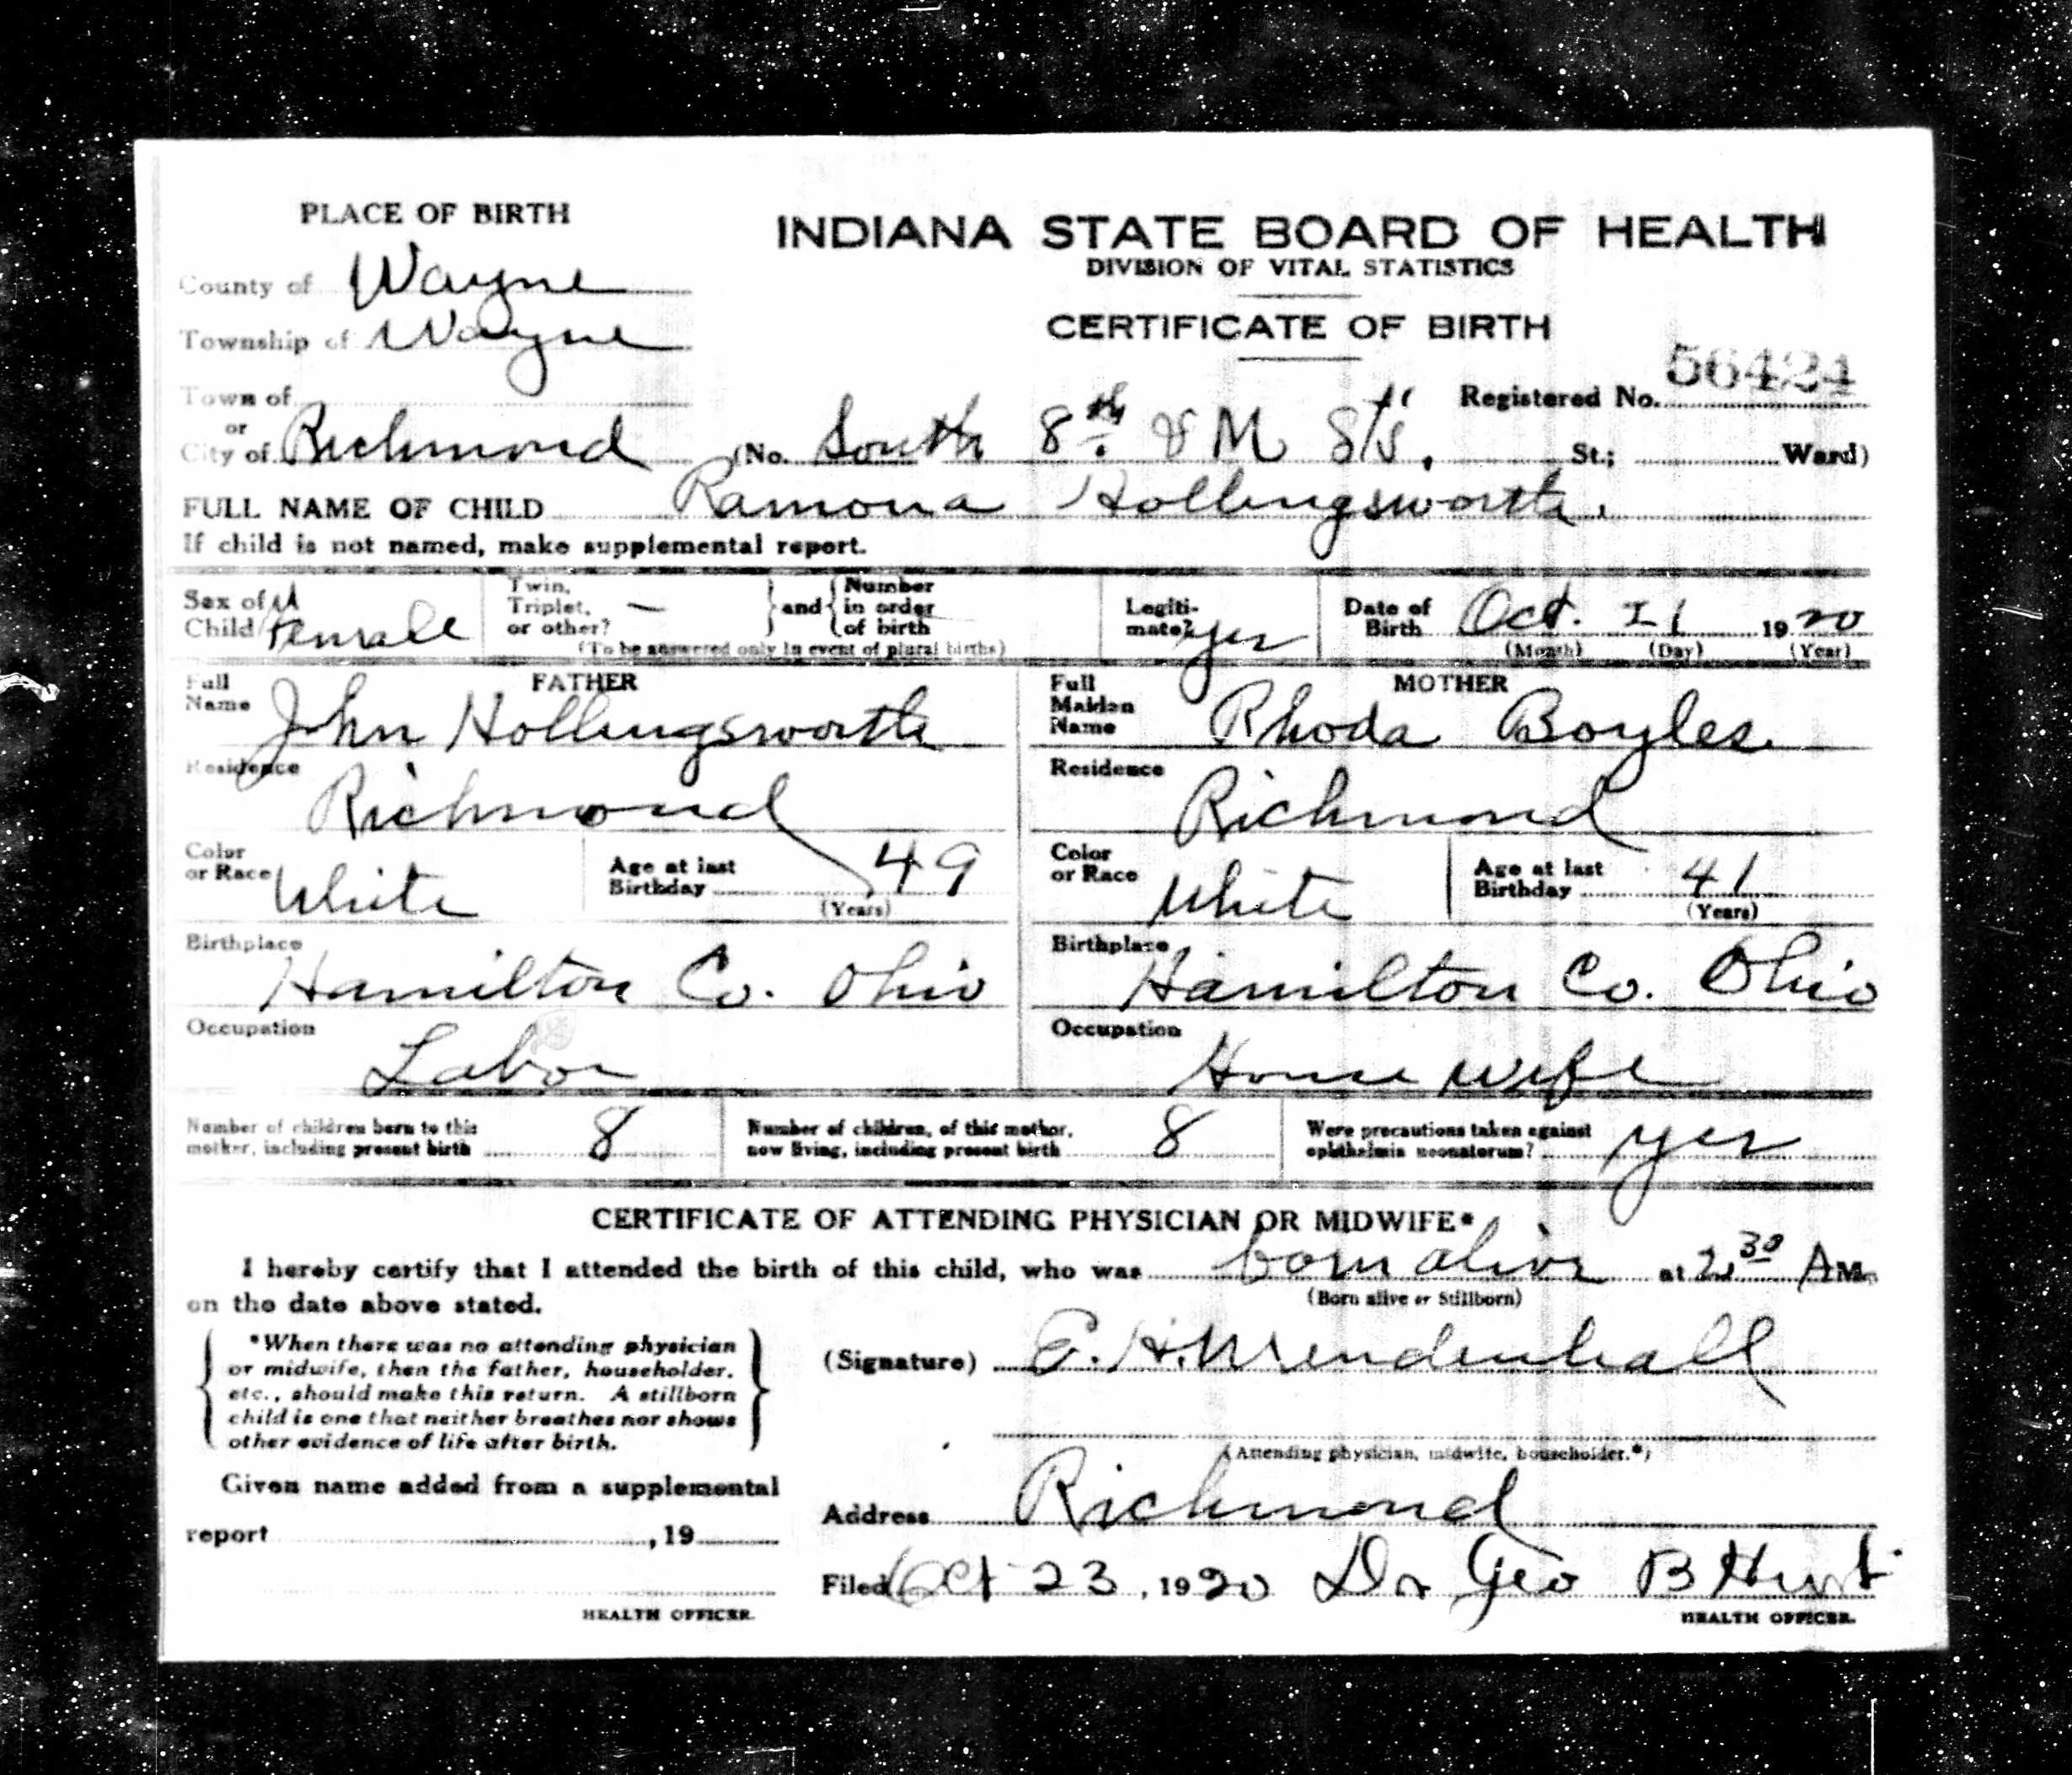 PLACE OF BIRTH
INDIANA STATE BOARD OF HEALTH
DIVISION OF VITAL STATISTICS
CERTIFICATE OF BIRTH
County of Wayne
Township of Wayne
Registered No. 56424
Town of
or
City of Richmond (No. South 8th & M Sts, St.; Ward)
FULL NAME OF CHILD Ramona Hollingsworth.
If child is not named, make supplemental report.
Sex of Child Female
Twin, Triplet, or other? — and Number in order of birth
(To be answered only in event of plural births)
Legitimate? yes
Date of Birth Oct. 21 1920
(Month) (Day) (Year)
FATHER
Full Name John Hollingsworth
Residence Richmond
Color or Race White
Age at last Birthday 49
(Years)
Birthplace Hamilton Co. Ohio
Occupation Labor
MOTHER
Full Maiden Name Rhoda Boyles
Residence Richmond
Color or Race White
Age at last Birthday 41
(Years)
Birthplace Hamilton Co. Ohio
Occupation House wife
Number of children born to this mother, including present birth 8
Number of children, of this mother, now living, including present birth 8
Were precautions taken against ophthalmia neonatorum? yes
CERTIFICATE OF ATTENDING PHYSICIAN OR MIDWIFE*
I hereby certify that I attended the birth of this child, who was born alive at 2 30 A M.
(Born alive or Stillborn)
on the date above stated.
*When there was no attending physician
or midwife, then the father, householder,
etc., should make this return. A stillborn
child is one that neither breathes nor shows
other evidence of life after birth.
(Signature) E. H. Mendenhall
(Attending physician, midwife, householder.*)
Given name added from a supplemental
report , 19
HEALTH OFFICER.
Address Richmond
Filed Oct 23, 1920 Dr Geo B Hunt
HEALTH OFFICER.